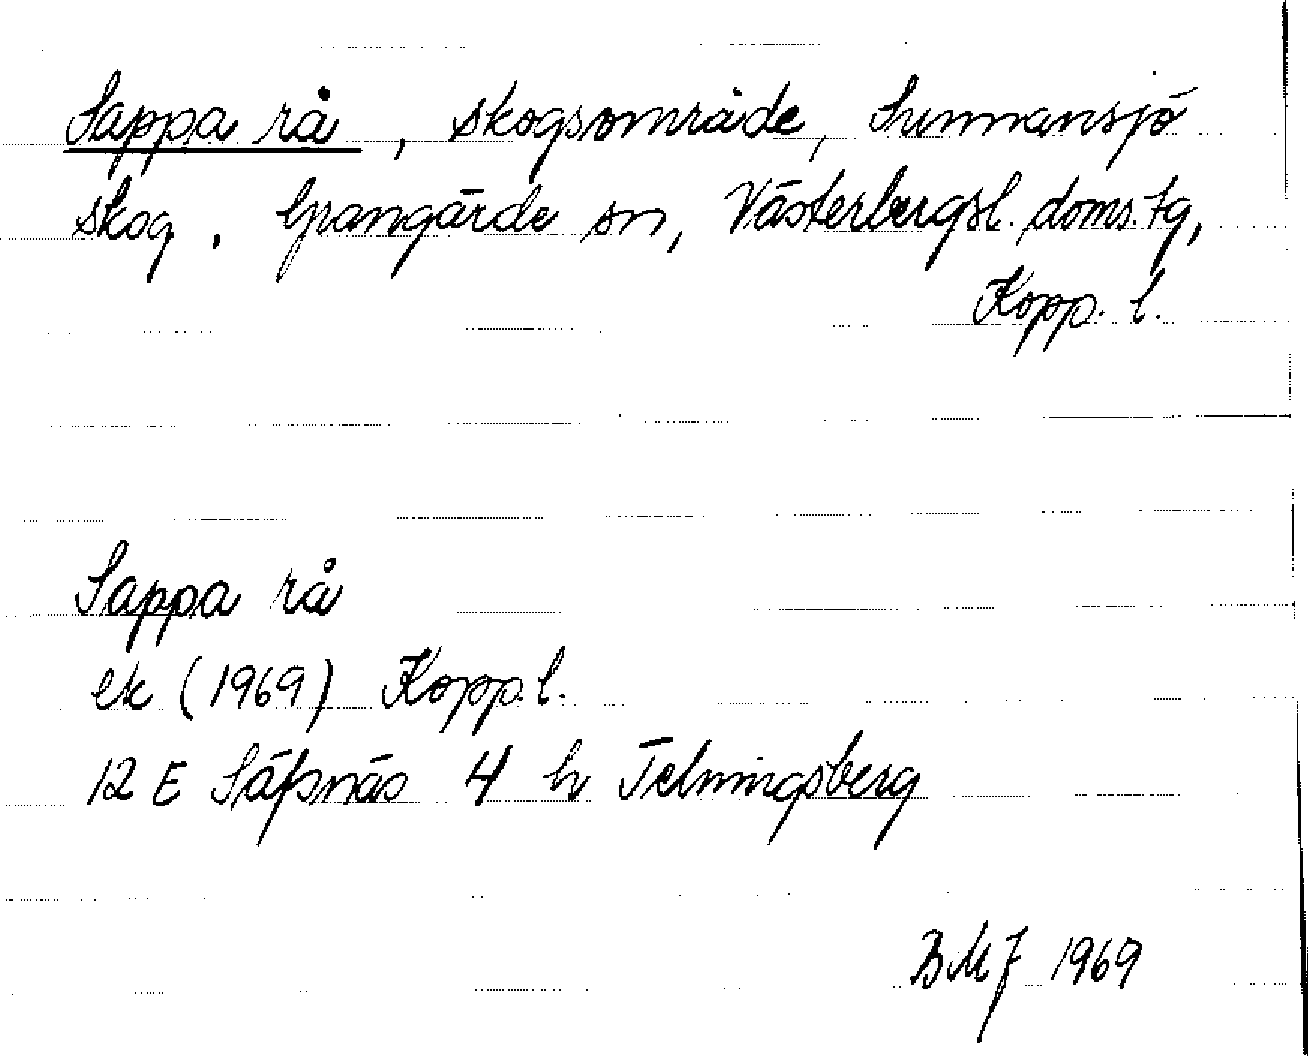 Sappa rå, skogsområde, Sunnansjö
skog, Grangärde sn, Västerbergsl. doms. tg,
Kopp. l.
Sappa rå
ek (1969) Kopp. l.
12 E Säfsnäs 4 h Telningsberg
BMJ 1969